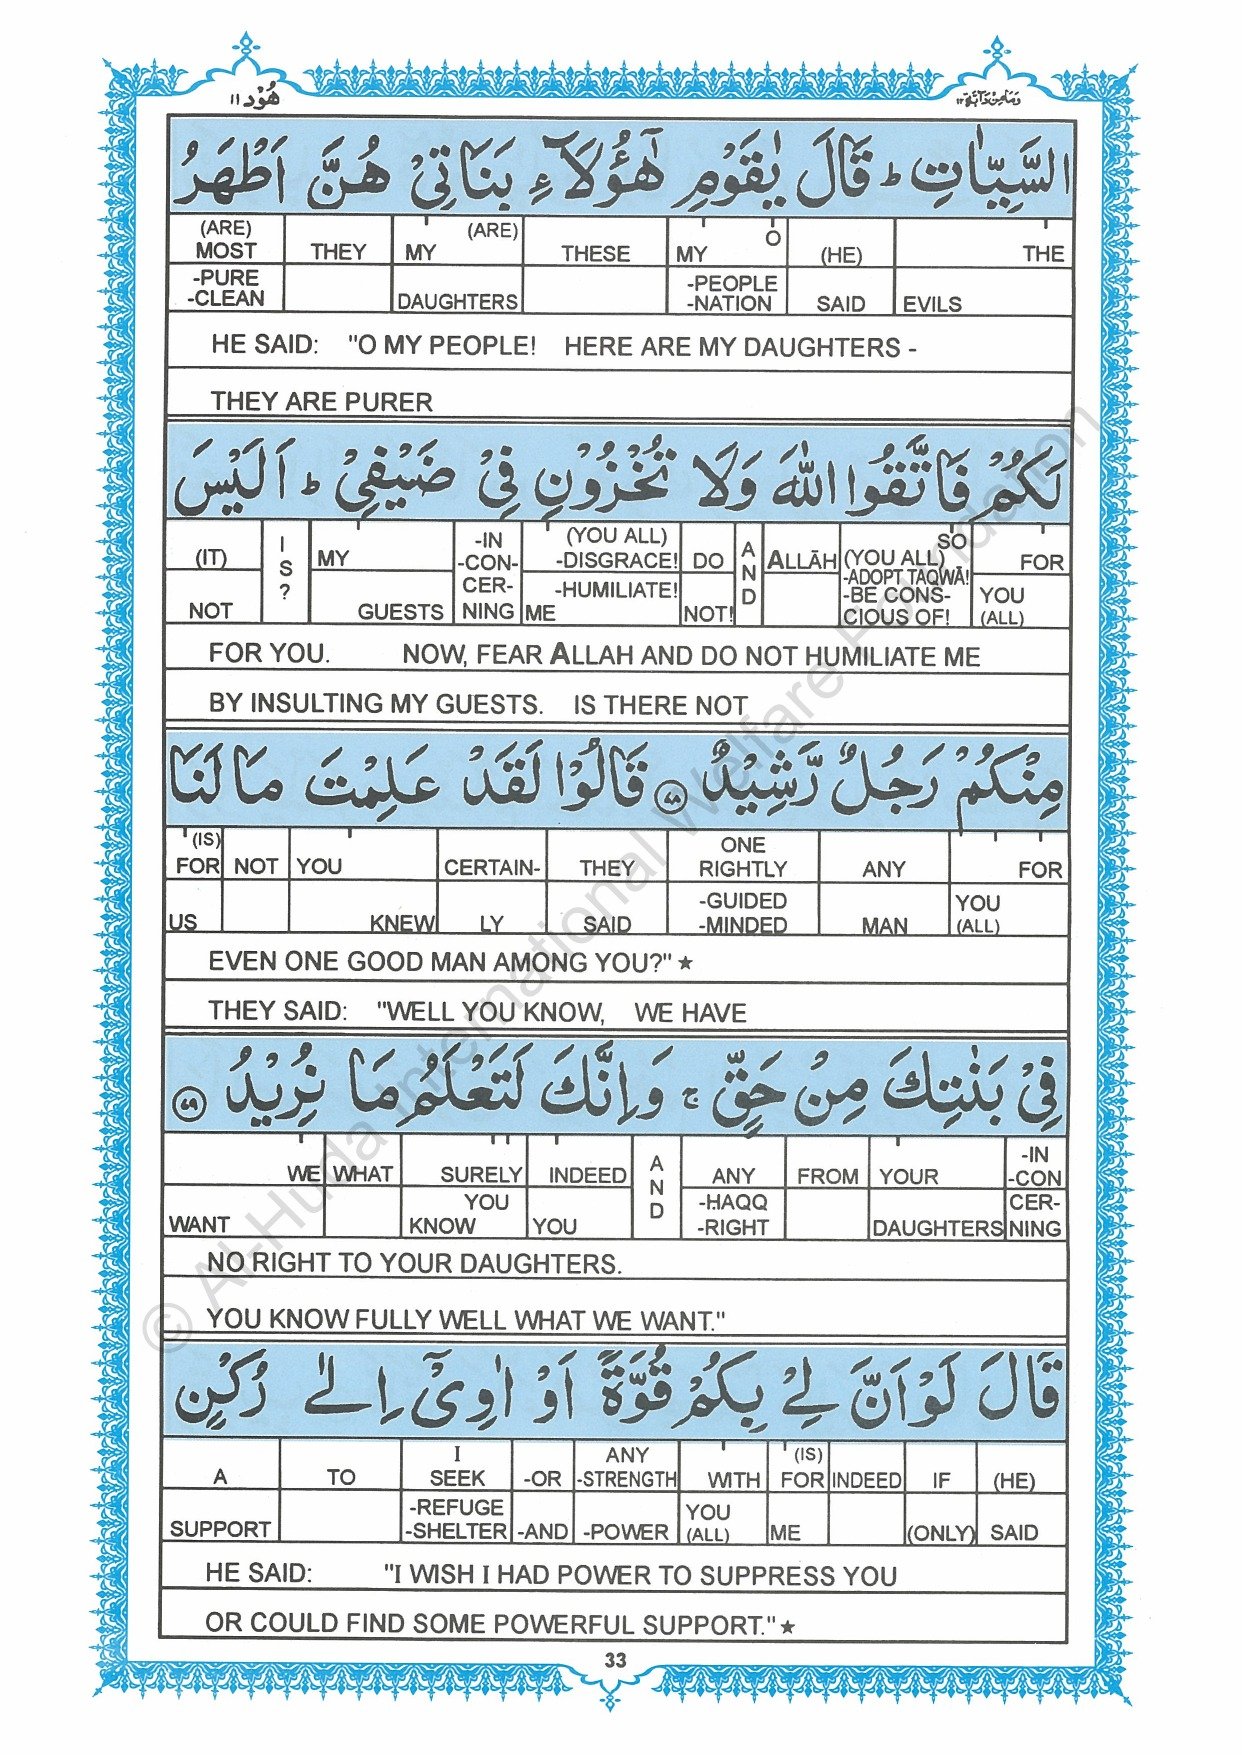 هُوْد ۱۱
وَمَا مِنْ دَآبَّة ۱۲
السَّيِّاٰتِ ؕ قَالَ يٰقَوْمِ هٰٓؤُلَآءِ بَنَاتِىْ هُنَّ اَطْهَرُ
(ARE) MOST THEY MY (ARE) THESE MY O (HE) THE
-PURE -CLEAN DAUGHTERS -PEOPLE -NATION SAID EVILS
HE SAID: "O MY PEOPLE! HERE ARE MY DAUGHTERS -
THEY ARE PURER
لَكُمْ فَاتَّقُوا اللّٰهَ وَلَا تُخْزُوْنِ فِىْ ضَيْفِىْ ؕ اَلَيْسَ
(IT) IS? MY -IN -CON- (YOU ALL) -DISGRACE! DO AND ALLĀH SO (YOU ALL) -ADOPT TAQWĀ! FOR
NOT GUESTS CER- NING ME -HUMILIATE! NOT! -BE CONS- CIOUS OF! YOU (ALL)
FOR YOU. NOW, FEAR ALLAH AND DO NOT HUMILIATE ME
BY INSULTING MY GUESTS. IS THERE NOT
مِنْكُمْ رَجُلٌ رَّشِيْدٌ ۷۸ قَالُوْا لَقَدْ عَلِمْتَ مَا لَنَا
(IS) FOR NOT YOU CERTAIN- THEY ONE RIGHTLY ANY FOR
US KNEW LY SAID -GUIDED -MINDED MAN YOU (ALL)
EVEN ONE GOOD MAN AMONG YOU?" ★
THEY SAID: "WELL YOU KNOW, WE HAVE
فِىْ بَنٰتِكَ مِنْ حَقٍّ ۚ وَاِنَّكَ لَتَعْلَمُ مَا نُرِيْدُ ۷۹
WE WHAT SURELY INDEED AND ANY FROM YOUR -IN -CON
WANT YOU KNOW YOU -HAQQ -RIGHT DAUGHTERS CER- NING
NO RIGHT TO YOUR DAUGHTERS.
YOU KNOW FULLY WELL WHAT WE WANT."
قَالَ لَوْ اَنَّ لِىْ بِكُمْ قُوَّةً اَوْ اٰوِىْٓ اِلٰى رُكْنٍ
A TO I SEEK -OR ANY -STRENGTH WITH (IS) FOR INDEED IF (HE)
SUPPORT -REFUGE -SHELTER -AND -POWER YOU (ALL) ME (ONLY) SAID
HE SAID: "I WISH I HAD POWER TO SUPPRESS YOU
OR COULD FIND SOME POWERFUL SUPPORT." ★
33
© Al-Huda International Welfare Foundation